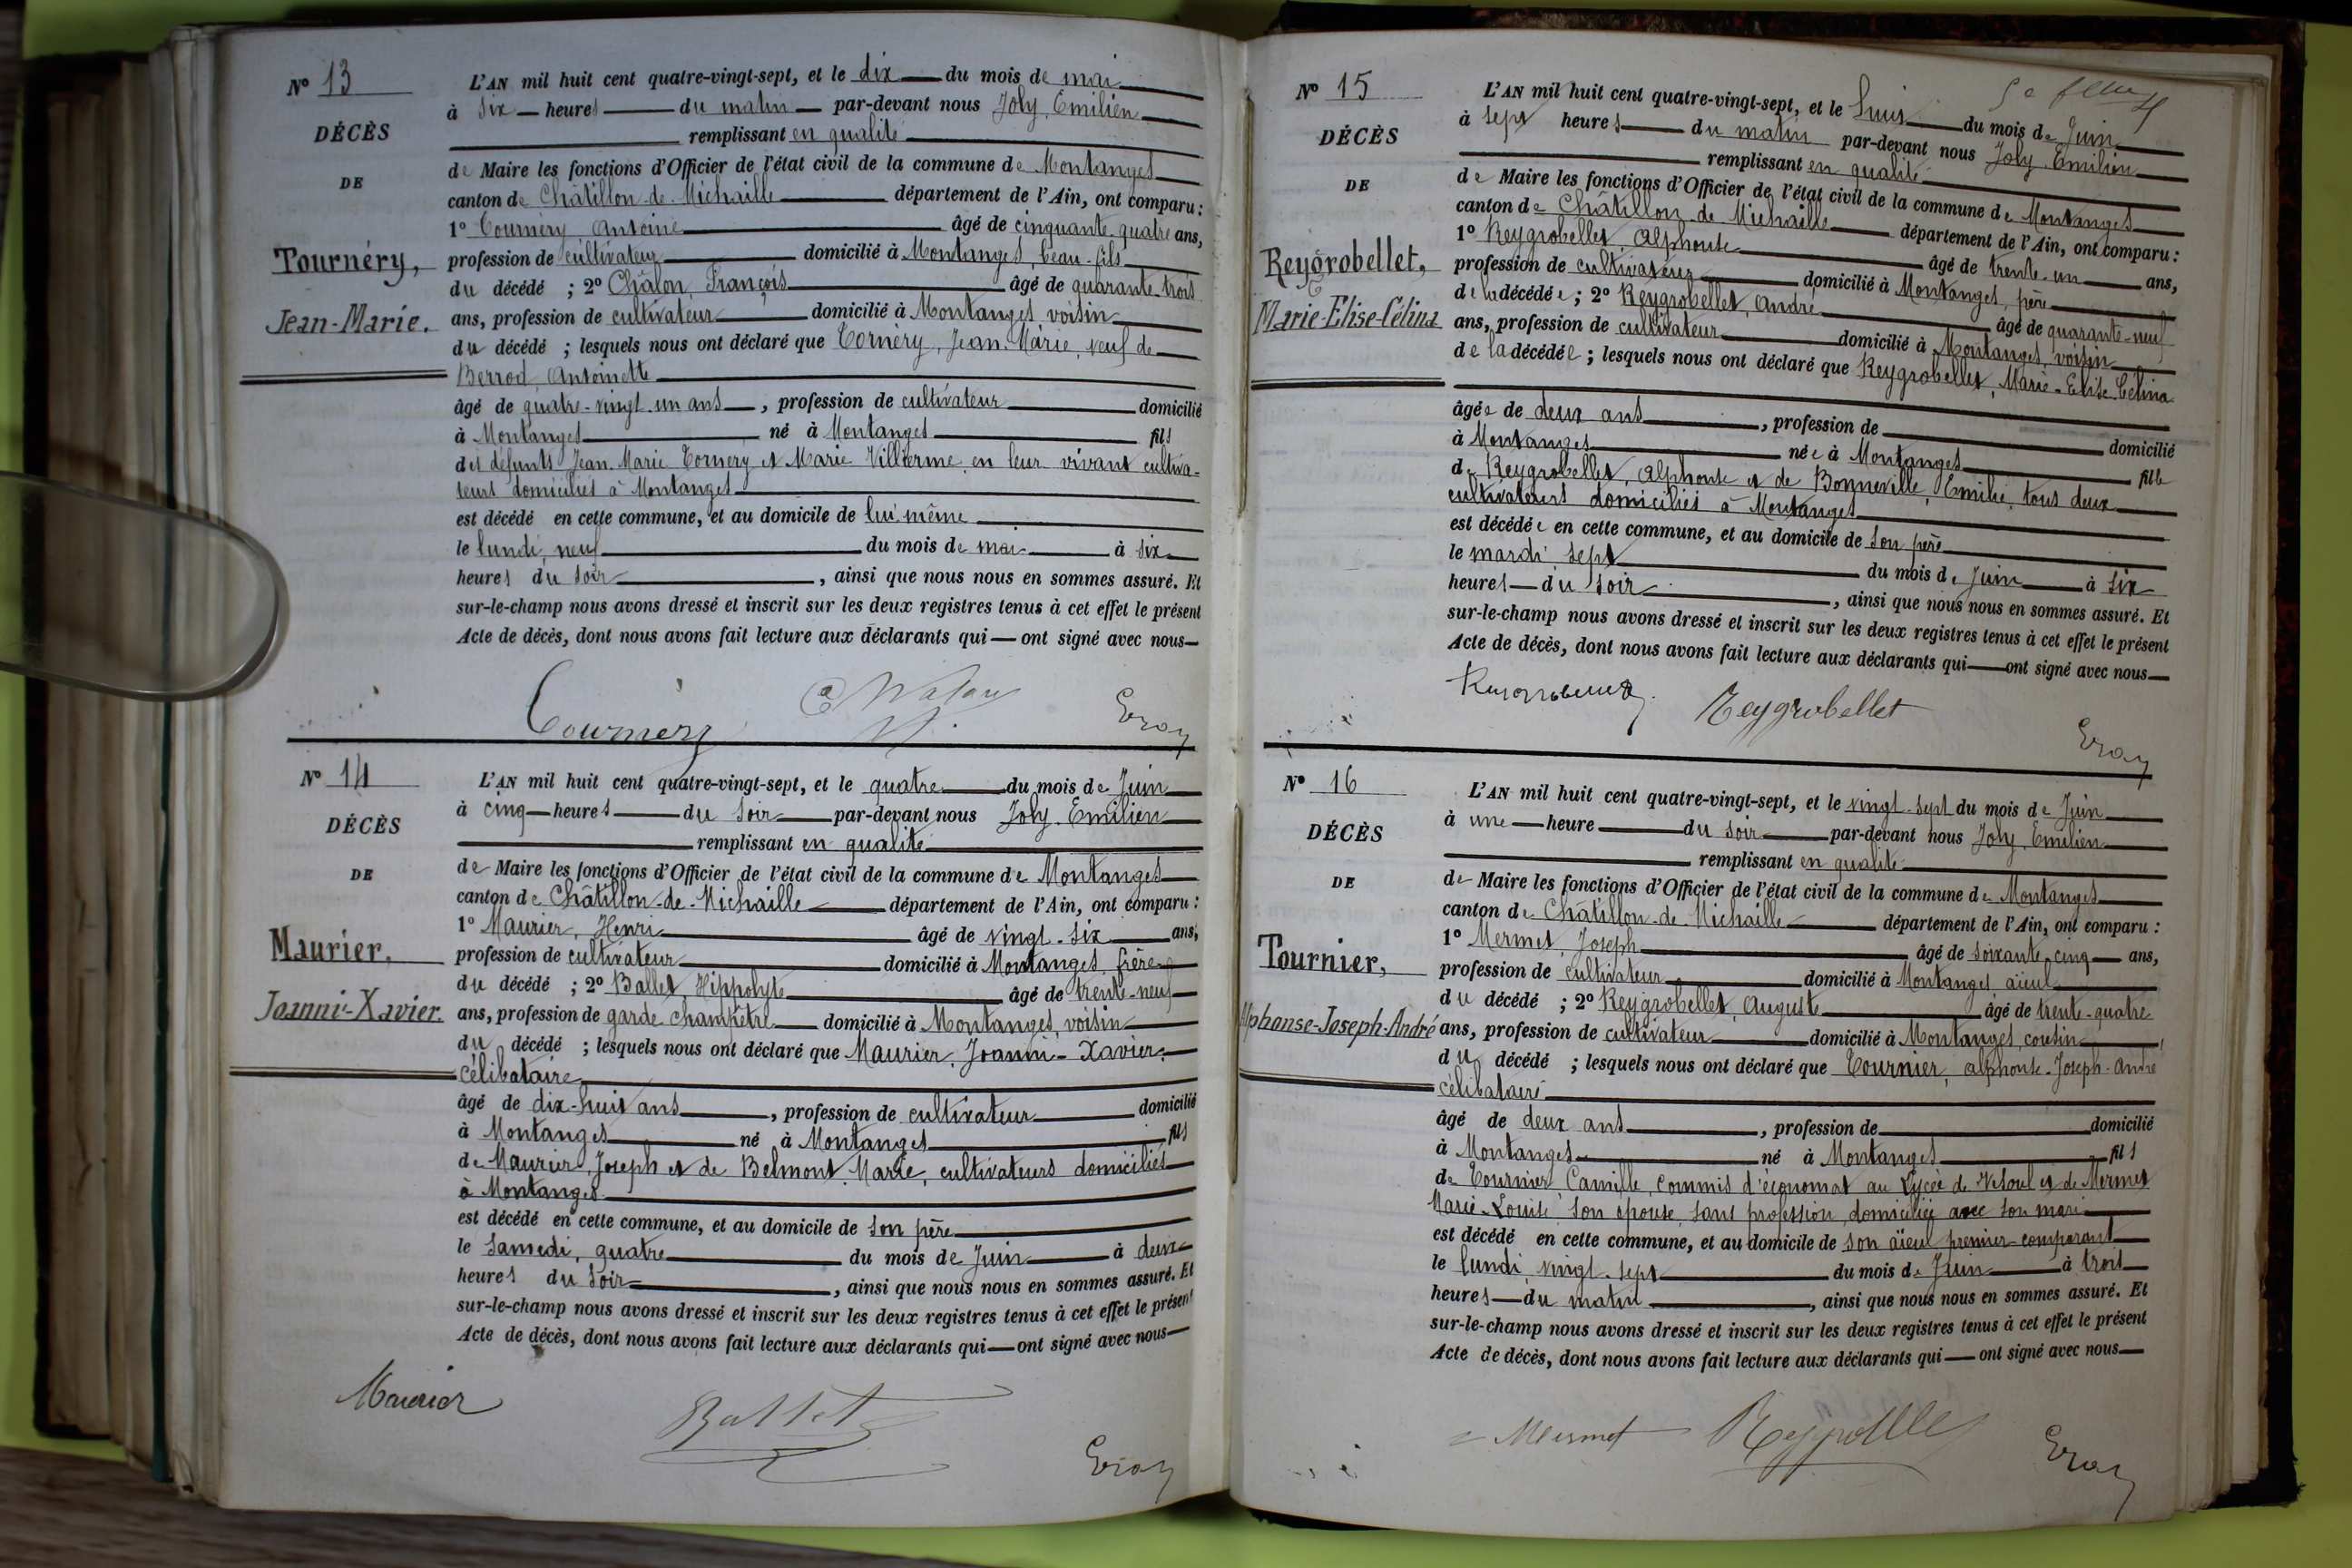 N° 13
DÉCÈS
DE
Tournéry,
Jean-Marie.
L'AN mil huit cent quatre-vingt-sept, et le dix du mois de mai
à six heures du matin par-devant nous Joly, Emilien
remplissant en qualité
de Maire les fonctions d'Officier de l'état civil de la commune de Montanges
canton de Châtillon-de-Michaille département de l'Ain, ont comparu :
1° Tournéry Antoine âgé de cinquante-quatre ans,
profession de cultivateur domicilié à Montanges, beau-fils
du décédé ; 2° Châlon, François âgé de quarante-trois
ans, profession de cultivateur domicilié à Montanges voisin
du décédé ; lesquels nous ont déclaré que Tornéry, Jean-Marie, veuf de
Berrod, Antoinette
âgé de quatre-vingt-un ans, profession de cultivateur domicilié
à Montanges né à Montanges fils
des défunts Jean-Marie Tornery et Marie Villerme en leur vivant cultiva-
teurs domiciliés à Montanges
est décédé en cette commune, et au domicile de lui-même
le lundi, neuf du mois de mai à six
heures du soir, ainsi que nous nous en sommes assuré. Et
sur-le-champ nous avons dressé et inscrit sur les deux registres tenus à cet effet le présent
Acte de décès, dont nous avons fait lecture aux déclarants qui ont signé avec nous
Tournéry
N° 14
DÉCÈS
DE
Maurier,
Joanni-Xavier.
L'AN mil huit cent quatre-vingt-sept, et le quatre du mois de Juin
à cinq heures du soir par-devant nous Joly Emilien
remplissant en qualité
de Maire les fonctions d'Officier de l'état civil de la commune de Montanges
canton de Châtillon-de-Michaille département de l'Ain, ont comparu :
1° Maurier, Henri âgé de vingt-six ans,
profession de cultivateur domicilié à Montanges, frère
du décédé ; 2° Ballet Hippolyte âgé de trente-neuf
ans, profession de garde-champêtre domicilié à Montanges, voisin
du décédé ; lesquels nous ont déclaré que Maurier, Joanni-Xavier,
célibataire
âgé de dix-huit ans, profession de cultivateur domicilié
à Montanges né à Montanges fils
de Maurier, Joseph et de Belmont Marie, cultivateurs domiciliés
à Montanges
est décédé en cette commune, et au domicile de son père
le samedi, quatre du mois de Juin à deux
heures du soir, ainsi que nous nous en sommes assuré. Et
sur-le-champ nous avons dressé et inscrit sur les deux registres tenus à cet effet le présent
Acte de décès, dont nous avons fait lecture aux déclarants qui ont signé avec nous
Maurier
Ballet
N° 15
DÉCÈS
DE
Reygrobellet,
Marie-Elise-Célina
L'AN mil huit cent quatre-vingt-sept, et le huit du mois de Juin
à sept heures du matin par-devant nous Joly Emilien
remplissant en qualité
de Maire les fonctions d'Officier de l'état civil de la commune de Montanges
canton de Châtillon-de-Michaille département de l'Ain, ont comparu :
1° Reygrobellet, Alphonse âgé de trente-un ans,
profession de cultivateur domicilié à Montanges, père
de la décédée ; 2° Reygrobellet, André âgé de quarante-neuf
ans, profession de cultivateur domicilié à Montanges, voisin
de la décédée ; lesquels nous ont déclaré que Reygrobellet, Marie-Elise-Célina
âgée de deux ans, profession de domicilié
à Montanges née à Montanges fille
de Reygrobellet, Alphonse et de Bonneville, Emilie, tous deux
cultivateurs domiciliés à Montanges
est décédée en cette commune, et au domicile de son père
le mardi sept du mois de Juin à six
heures du soir, ainsi que nous nous en sommes assuré. Et
sur-le-champ nous avons dressé et inscrit sur les deux registres tenus à cet effet le présent
Acte de décès, dont nous avons fait lecture aux déclarants qui ont signé avec nous
Reygrobellet
N° 16
DÉCÈS
DE
Tournier,
Alphonse-Joseph-André
L'AN mil huit cent quatre-vingt-sept, et le vingt-sept du mois de Juin
à une heure du soir par-devant nous Joly, Emilien
remplissant en qualité
de Maire les fonctions d'Officier de l'état civil de la commune de Montanges
canton de Châtillon-de-Michaille département de l'Ain, ont comparu :
1° Mermet, Joseph âgé de soixante-cinq ans,
profession de cultivateur domicilié à Montanges aïeul
du décédé ; 2° Reygrobellet, Auguste âgé de trente-quatre
ans, profession de cultivateur domicilié à Montanges, cousin,
du décédé ; lesquels nous ont déclaré que Tournier, Alphonse-Joseph-André
célibataire
âgé de deux ans, profession de domicilié
à Montanges né à Montanges fils
de Tournier Camille, commis d'économat au Lycée de Vesoul et de Mermet
Marie-Louise son épouse, sans profession, domiciliée avec son mari
est décédé en cette commune, et au domicile de son aïeul premier comparant
le lundi, vingt-sept du mois de Juin à trois
heures du matin, ainsi que nous nous en sommes assuré. Et
sur-le-champ nous avons dressé et inscrit sur les deux registres tenus à cet effet le présent
Acte de décès, dont nous avons fait lecture aux déclarants qui ont signé avec nous
Mermet